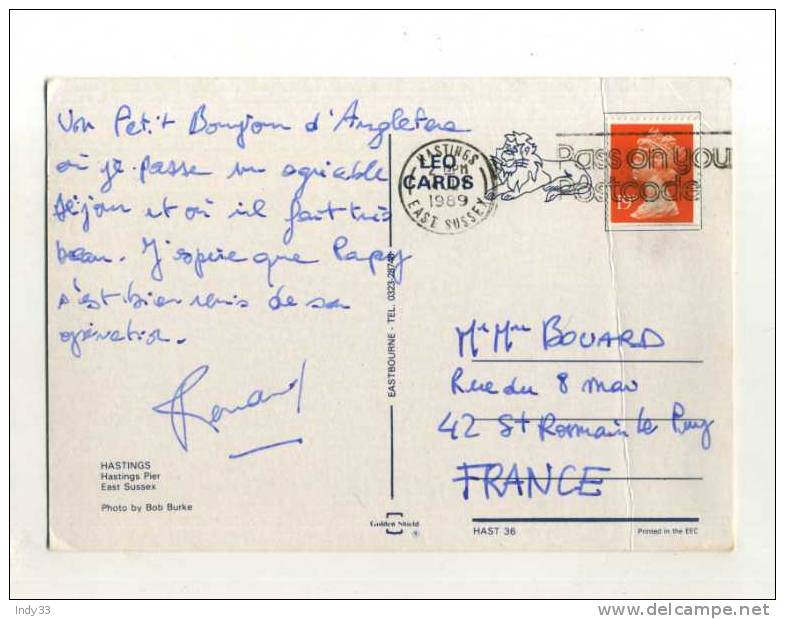 Un Petit Bonjour d'Angleterre
où je passe un agréable
séjour et où il fait très
beau. J'espère que Papy
s'est bien remis de son
opération.
HASTINGS
Hastings Pier
East Sussex
Photo by Bob Burke
EASTBOURNE - TEL. 0323-28748
Golden Shield
HASTINGS
LEO
CARDS
1989
EAST SUSSEX
Pass on you
Postcode
19
Mr Mme BOUARD
Rue du 8 mai
42 St Romain le Puy
FRANCE
HAST 36
Printed in the EEC
Indy33
www.delcampe.net